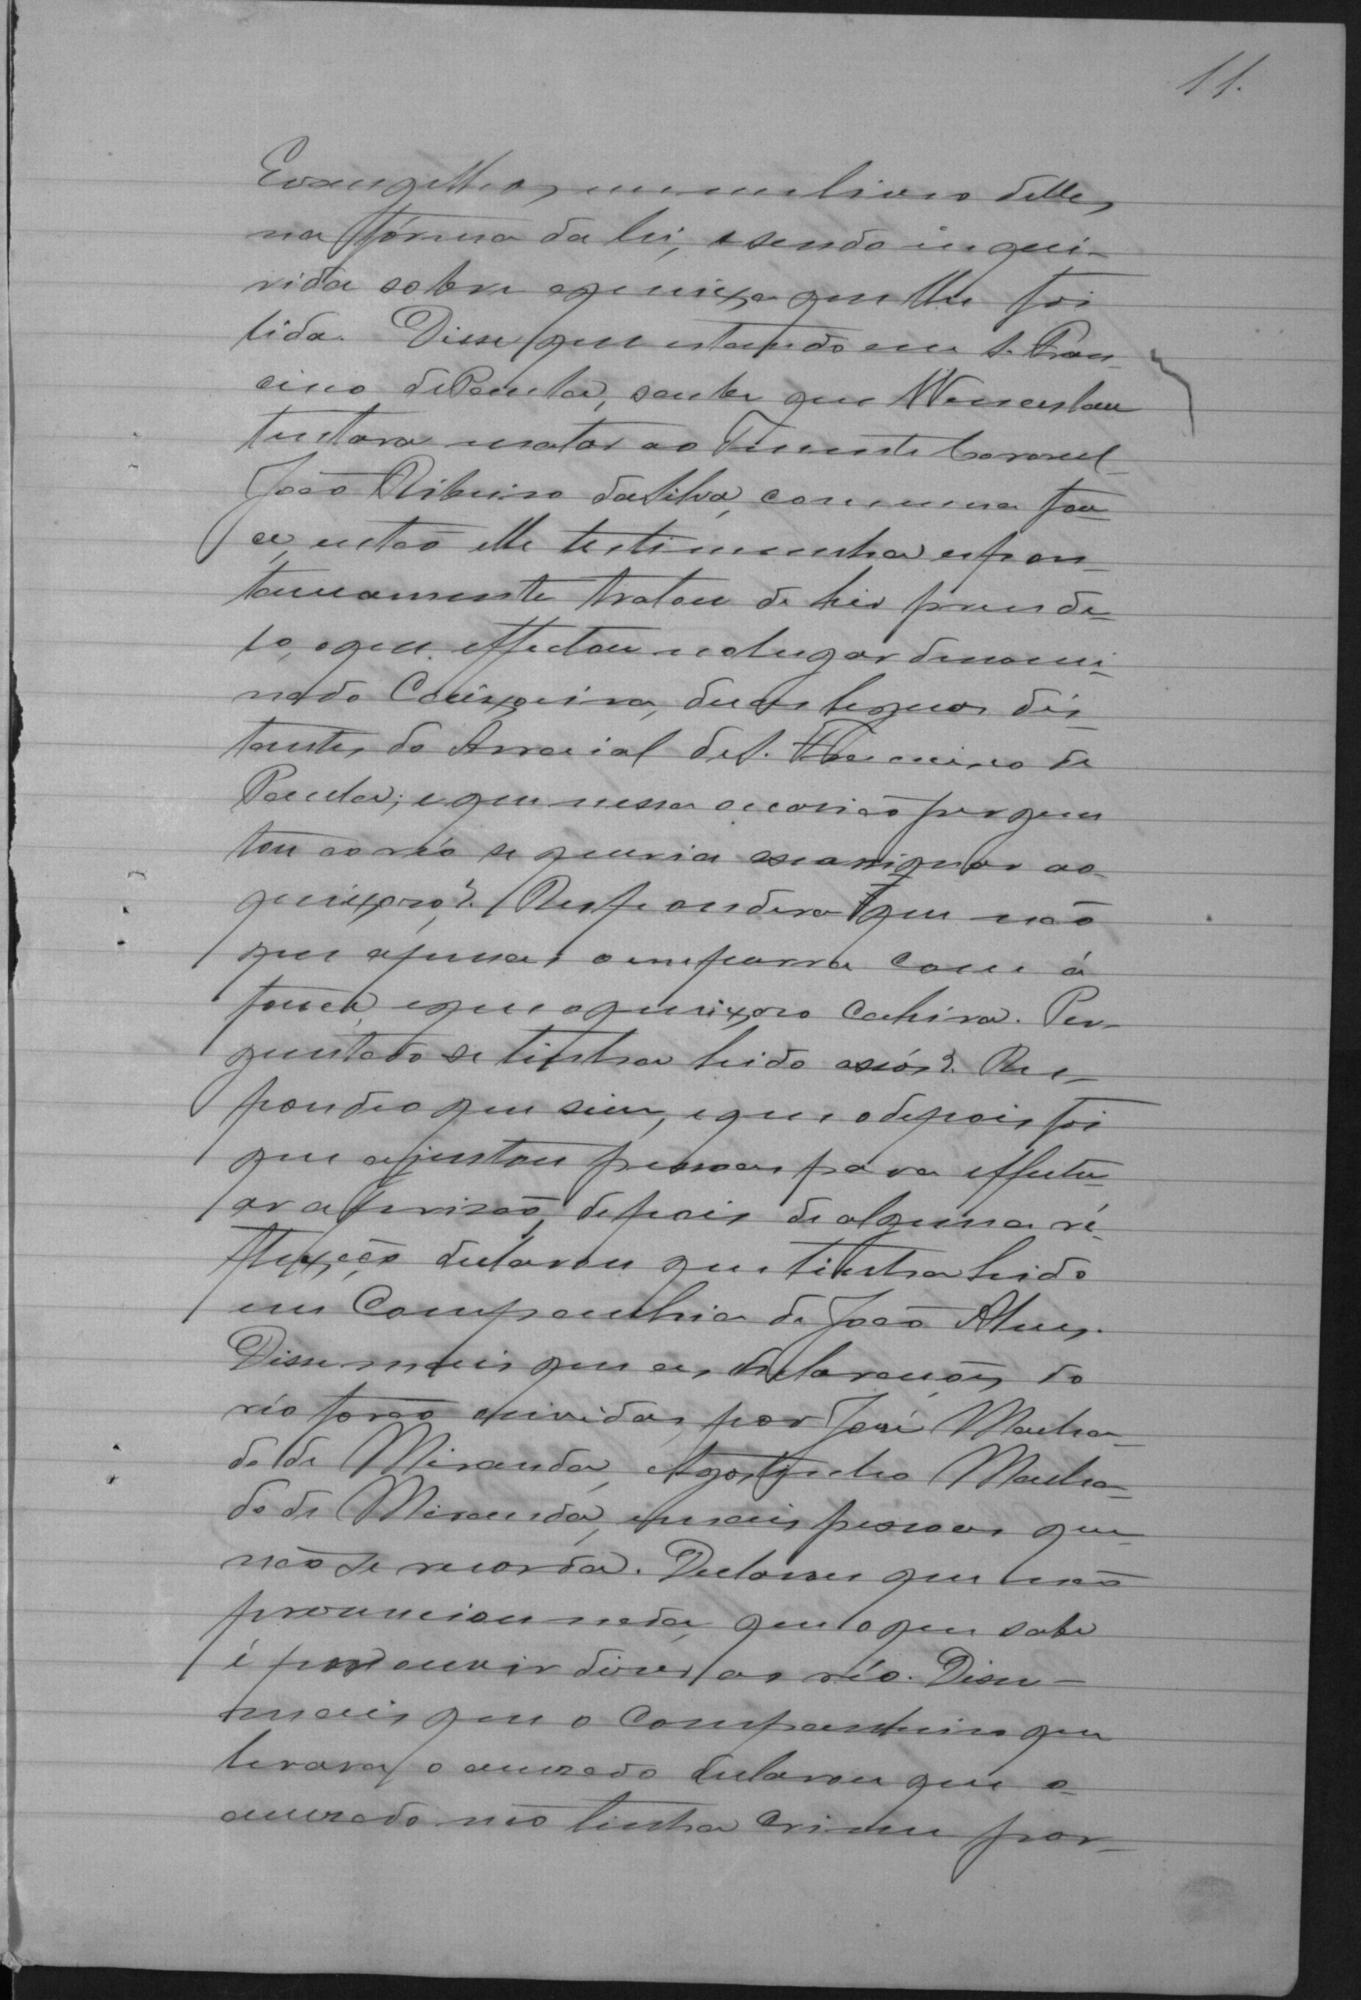 11.
Evangelhos, em um livro delles,
na fórma da lei, e sendo inqui-
rida sobre a queixa que lhe foi
lida. Disse que estando em S. Fran-
cisco de Paula, soube que Wenceslau
tentara matar ao Tenente Coronel
João Ribeiro da Silva, com uma fou-
ce, então elle testimunha espon-
taneamente tratou de hir prende-
lo, o que effectou no lugar denomi-
nado Caixoeira, duas legoas dis-
tantes do Arraial de S. Francisco de
Paula; e que nessa occasião pergun
tou ao réo se queria assassignar ao
queixoso? Respondera que não
que apenas o emparra com á
fouce, e que o queixoso cahira. Per-
guntado se tinha hido asós? Res-
pondeo que sim, e que odepois foi
que ajuntou pessoas para effectu-
ar a prizão, depois de alguma ré-
flexção declarou que tinha hido
em Companhia de João Alves.
Disse mais que as declarações do
réo forão ouvidas por José Macha-
do de Miranda, Agostinho Macha-
do de Miranda, e mais pessoas que
não se recorda. Declarou que não
prounciou nada, que o que sabe
é por ouvir dizer ao réo. Disse
mais que o Companheiro que
levava o accuzado declarou que o
accuzado não tinha crime por-